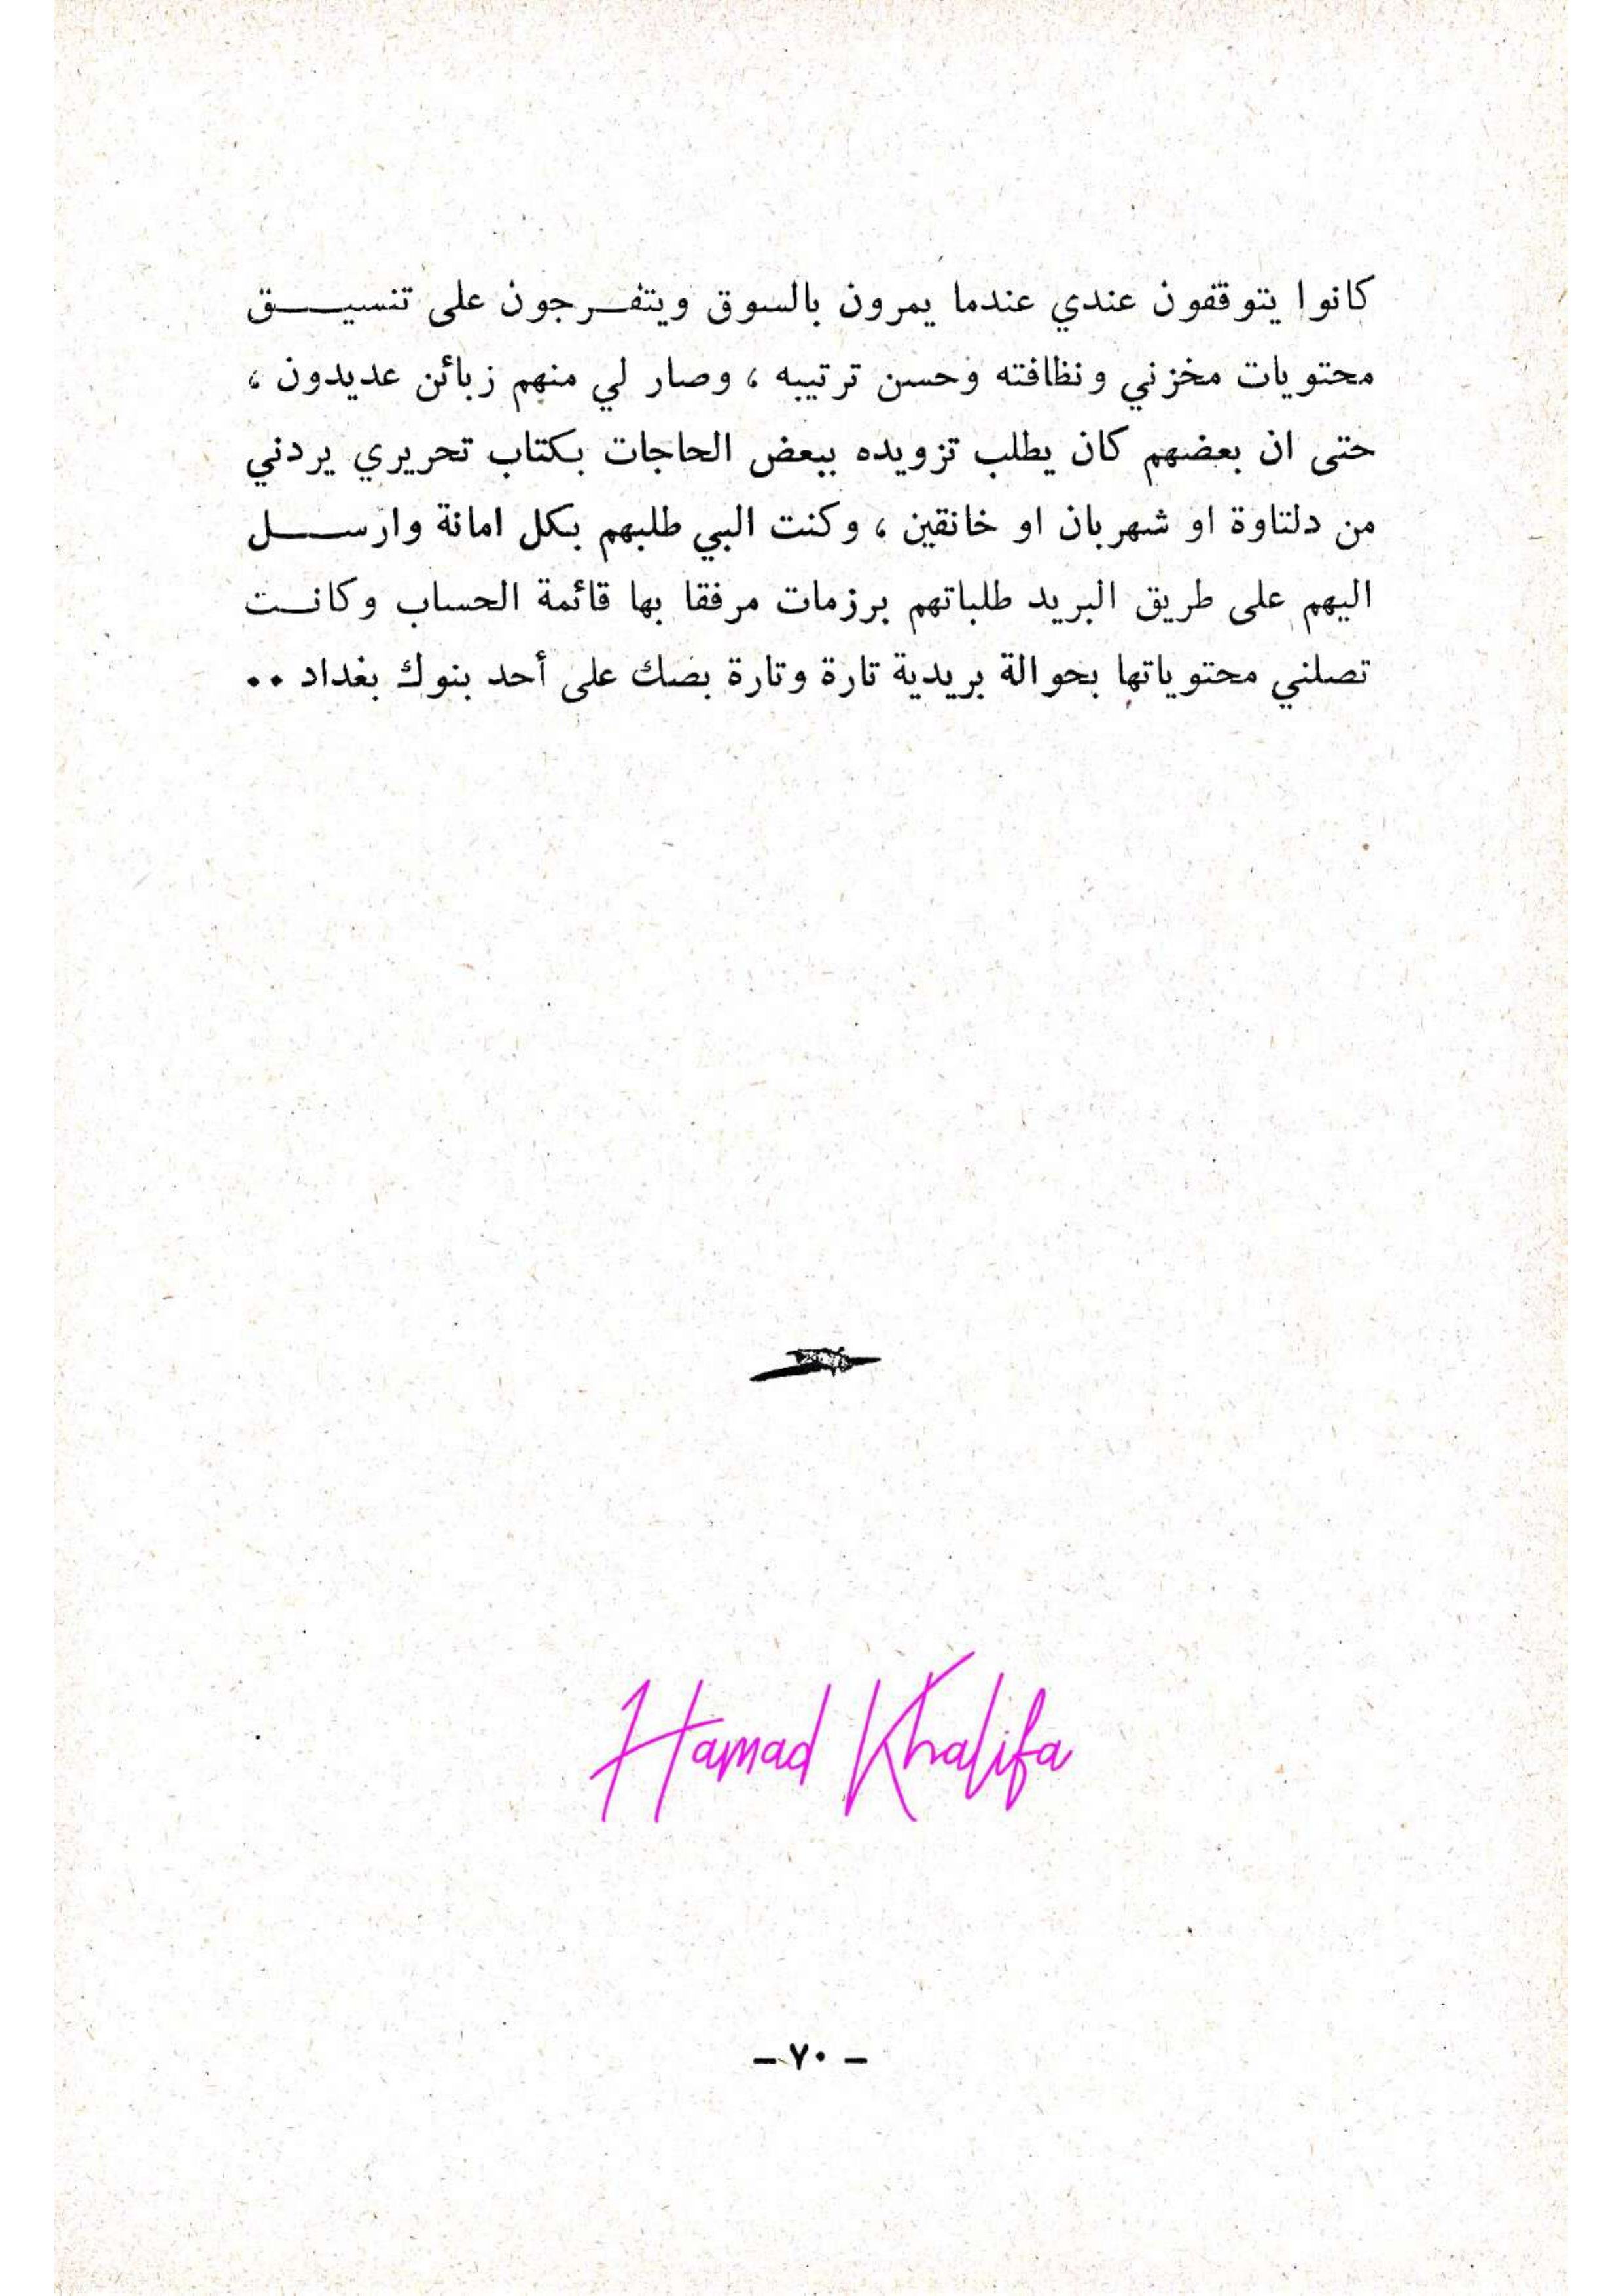 كانوا يتوقفون عندي عندما يمرون بالسوق ويتفـرجون على تنسيـــق
محتويات مخزني ونظافته وحسن ترتيبه ، وصار لي منهم زبائن عديدون ،
حتى ان بعضهم كان يطلب تزويده ببعض الحاجات بكتاب تحريري يردني
من دلتاوة او شهربان او خانقين ، وكنت البي طلبهم بكل امانة وارســـل
اليهم على طريق البريد طلباتهم برزمات مرفقا بها قائمة الحساب وكانــت
تصلني محتوياتها بحوالة بريدية تارة وتارة بصك على أحد بنوك بغداد ٠٠
Hamad Khalifa
– ٧٠ –